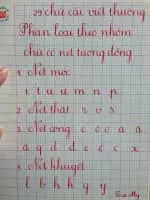 29 chữ cái viết thường
Phân loại theo nhóm
chữ có nét tương đồng
1. Nét móc
i t u ư m n p
2. Nét thắt r v s
3. Nét cong c o ô ơ a
ă â q d đ e ê x
4. Nét khuyết
l b h k g y